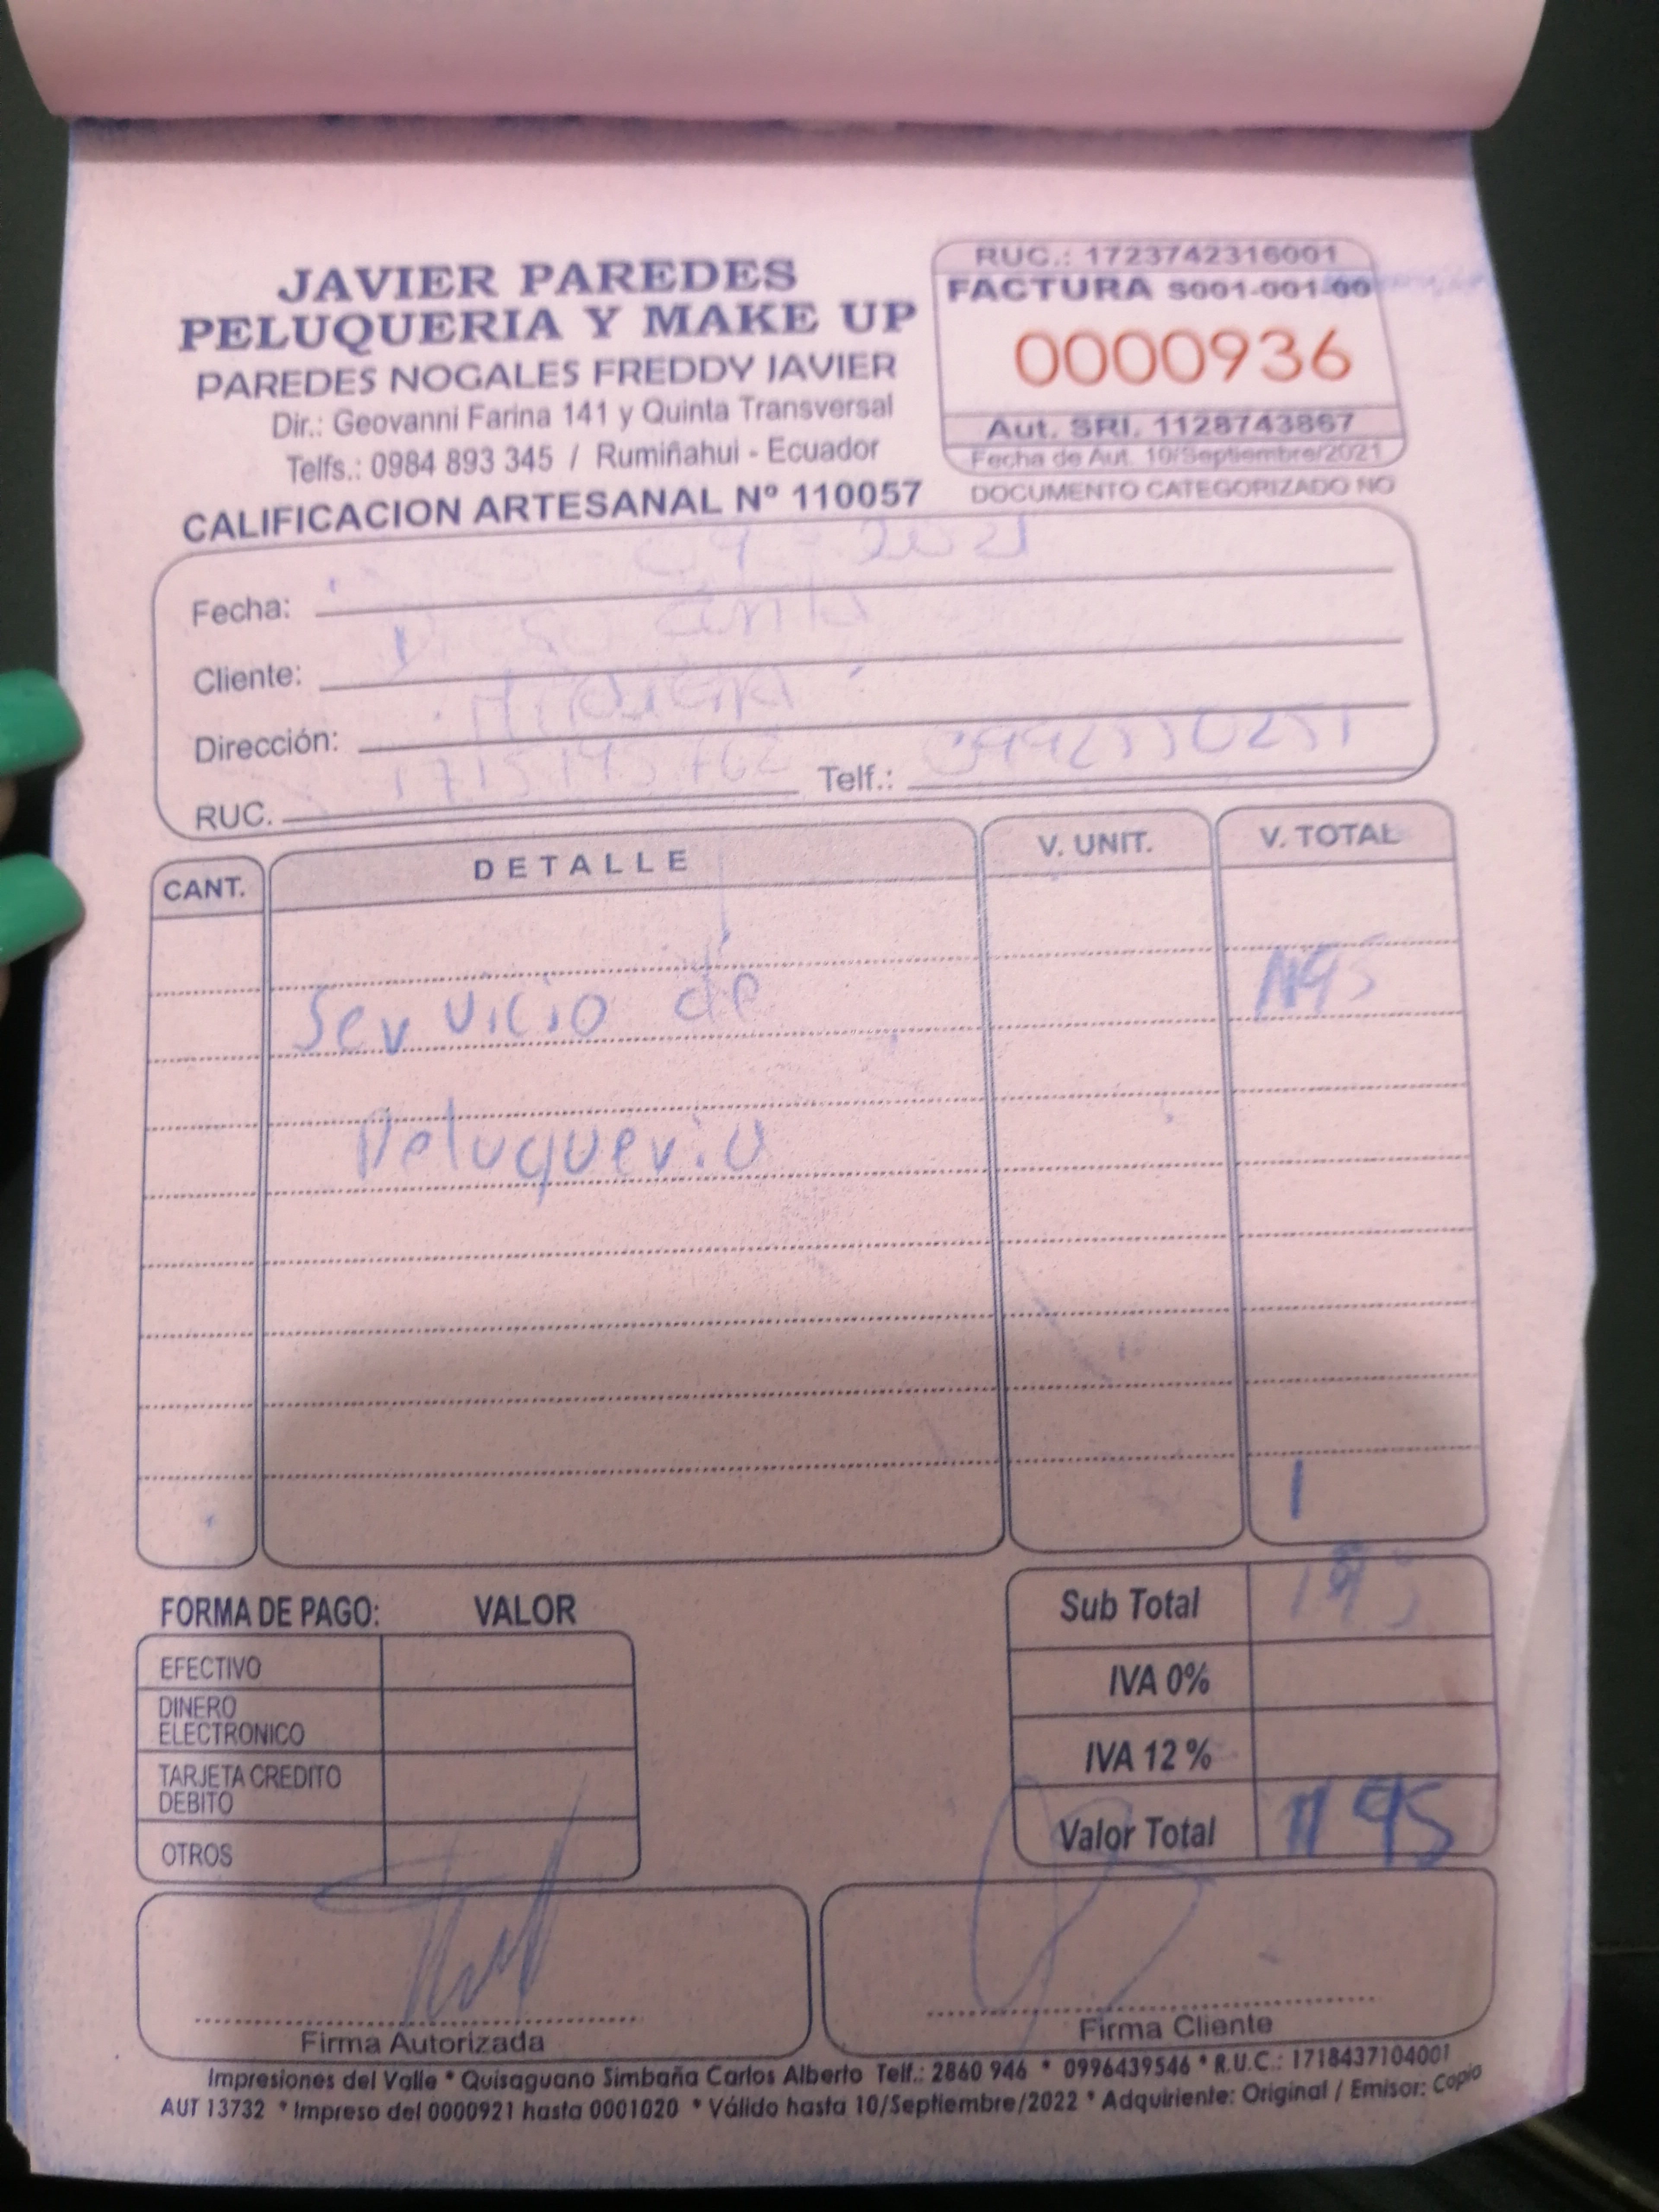 JAVIER PAREDES
PELUQUERIA Y MAKE UP
PAREDES NOGALES FREDDY JAVIER
Dir.: Geovanni Farina 141 y Quinta Transversal
Telfs.: 0984 893 345 / Rumiñahui - Ecuador
CALIFICACION ARTESANAL Nº 110057
RUC.: 1723742316001
FACTURA S001-001-00
0000936
Aut. SRI. 1128743867
Fecha de Aut. 10/Septiembre/2021
DOCUMENTO CATEGORIZADO NO
Fecha: 09 - 2021
Cliente:
Dirección:
RUC. Telf.:
CANT. DETALLE V. UNIT. V. TOTAL
Servicio de
Peluqueria
FORMA DE PAGO: VALOR
EFECTIVO
DINERO
ELECTRONICO
TARJETA CREDITO
DEBITO
OTROS
Sub Total
IVA 0%
IVA 12 %
Valor Total
Firma Autorizada
Firma Cliente
Impresiones del Valle * Quisaguano Simbaña Carlos Alberto Telf.: 2860 946 * 0996439546 * R.U.C.: 1718437104001
AUT 13732 * Impreso del 0000921 hasta 0001020 * Válido hasta 10/Septiembre/2022 * Adquiriente: Original / Emisor: Copia